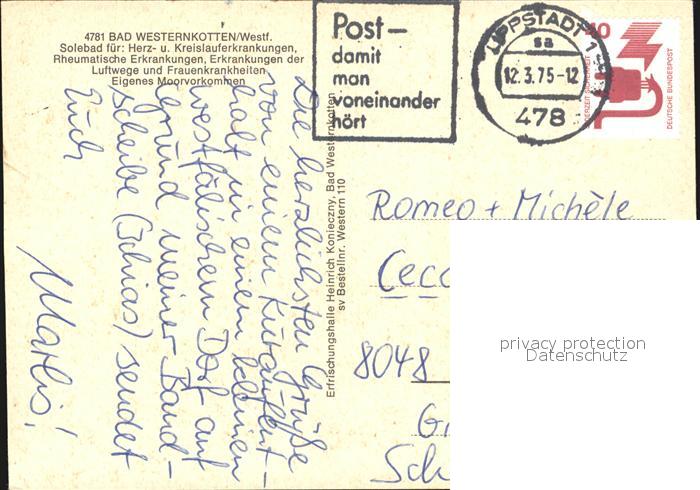 4781 BAD WESTERNKOTTEN/Westf.
Solebad für: Herz- u. Kreislauferkrankungen,
Rheumatische Erkrankungen, Erkrankungen der
Luftwege und Frauenkrankheiten
Eigenes Moorvorkommen
Post-
damit
man
voneinander
hört
LIPPSTADT 1
sa
12.3.75-12
478
40
JEDERZEIT SICHERHEIT
DEUTSCHE BUNDESPOST
Die herzlichsten Grüße
von einem Kuraufent-
halt in einem kleinen
westfälischem Dorf auf
Grund meiner Band-
scheibe (Ischias) sendet
Euch
Marlis!
Erfrischungshalle Heinrich Konieczny, Bad Westernkotten
sv Bestellnr. Western 110
Romeo + Michèle
Cecc
8048
G
Sch
privacy protection
Datenschutz